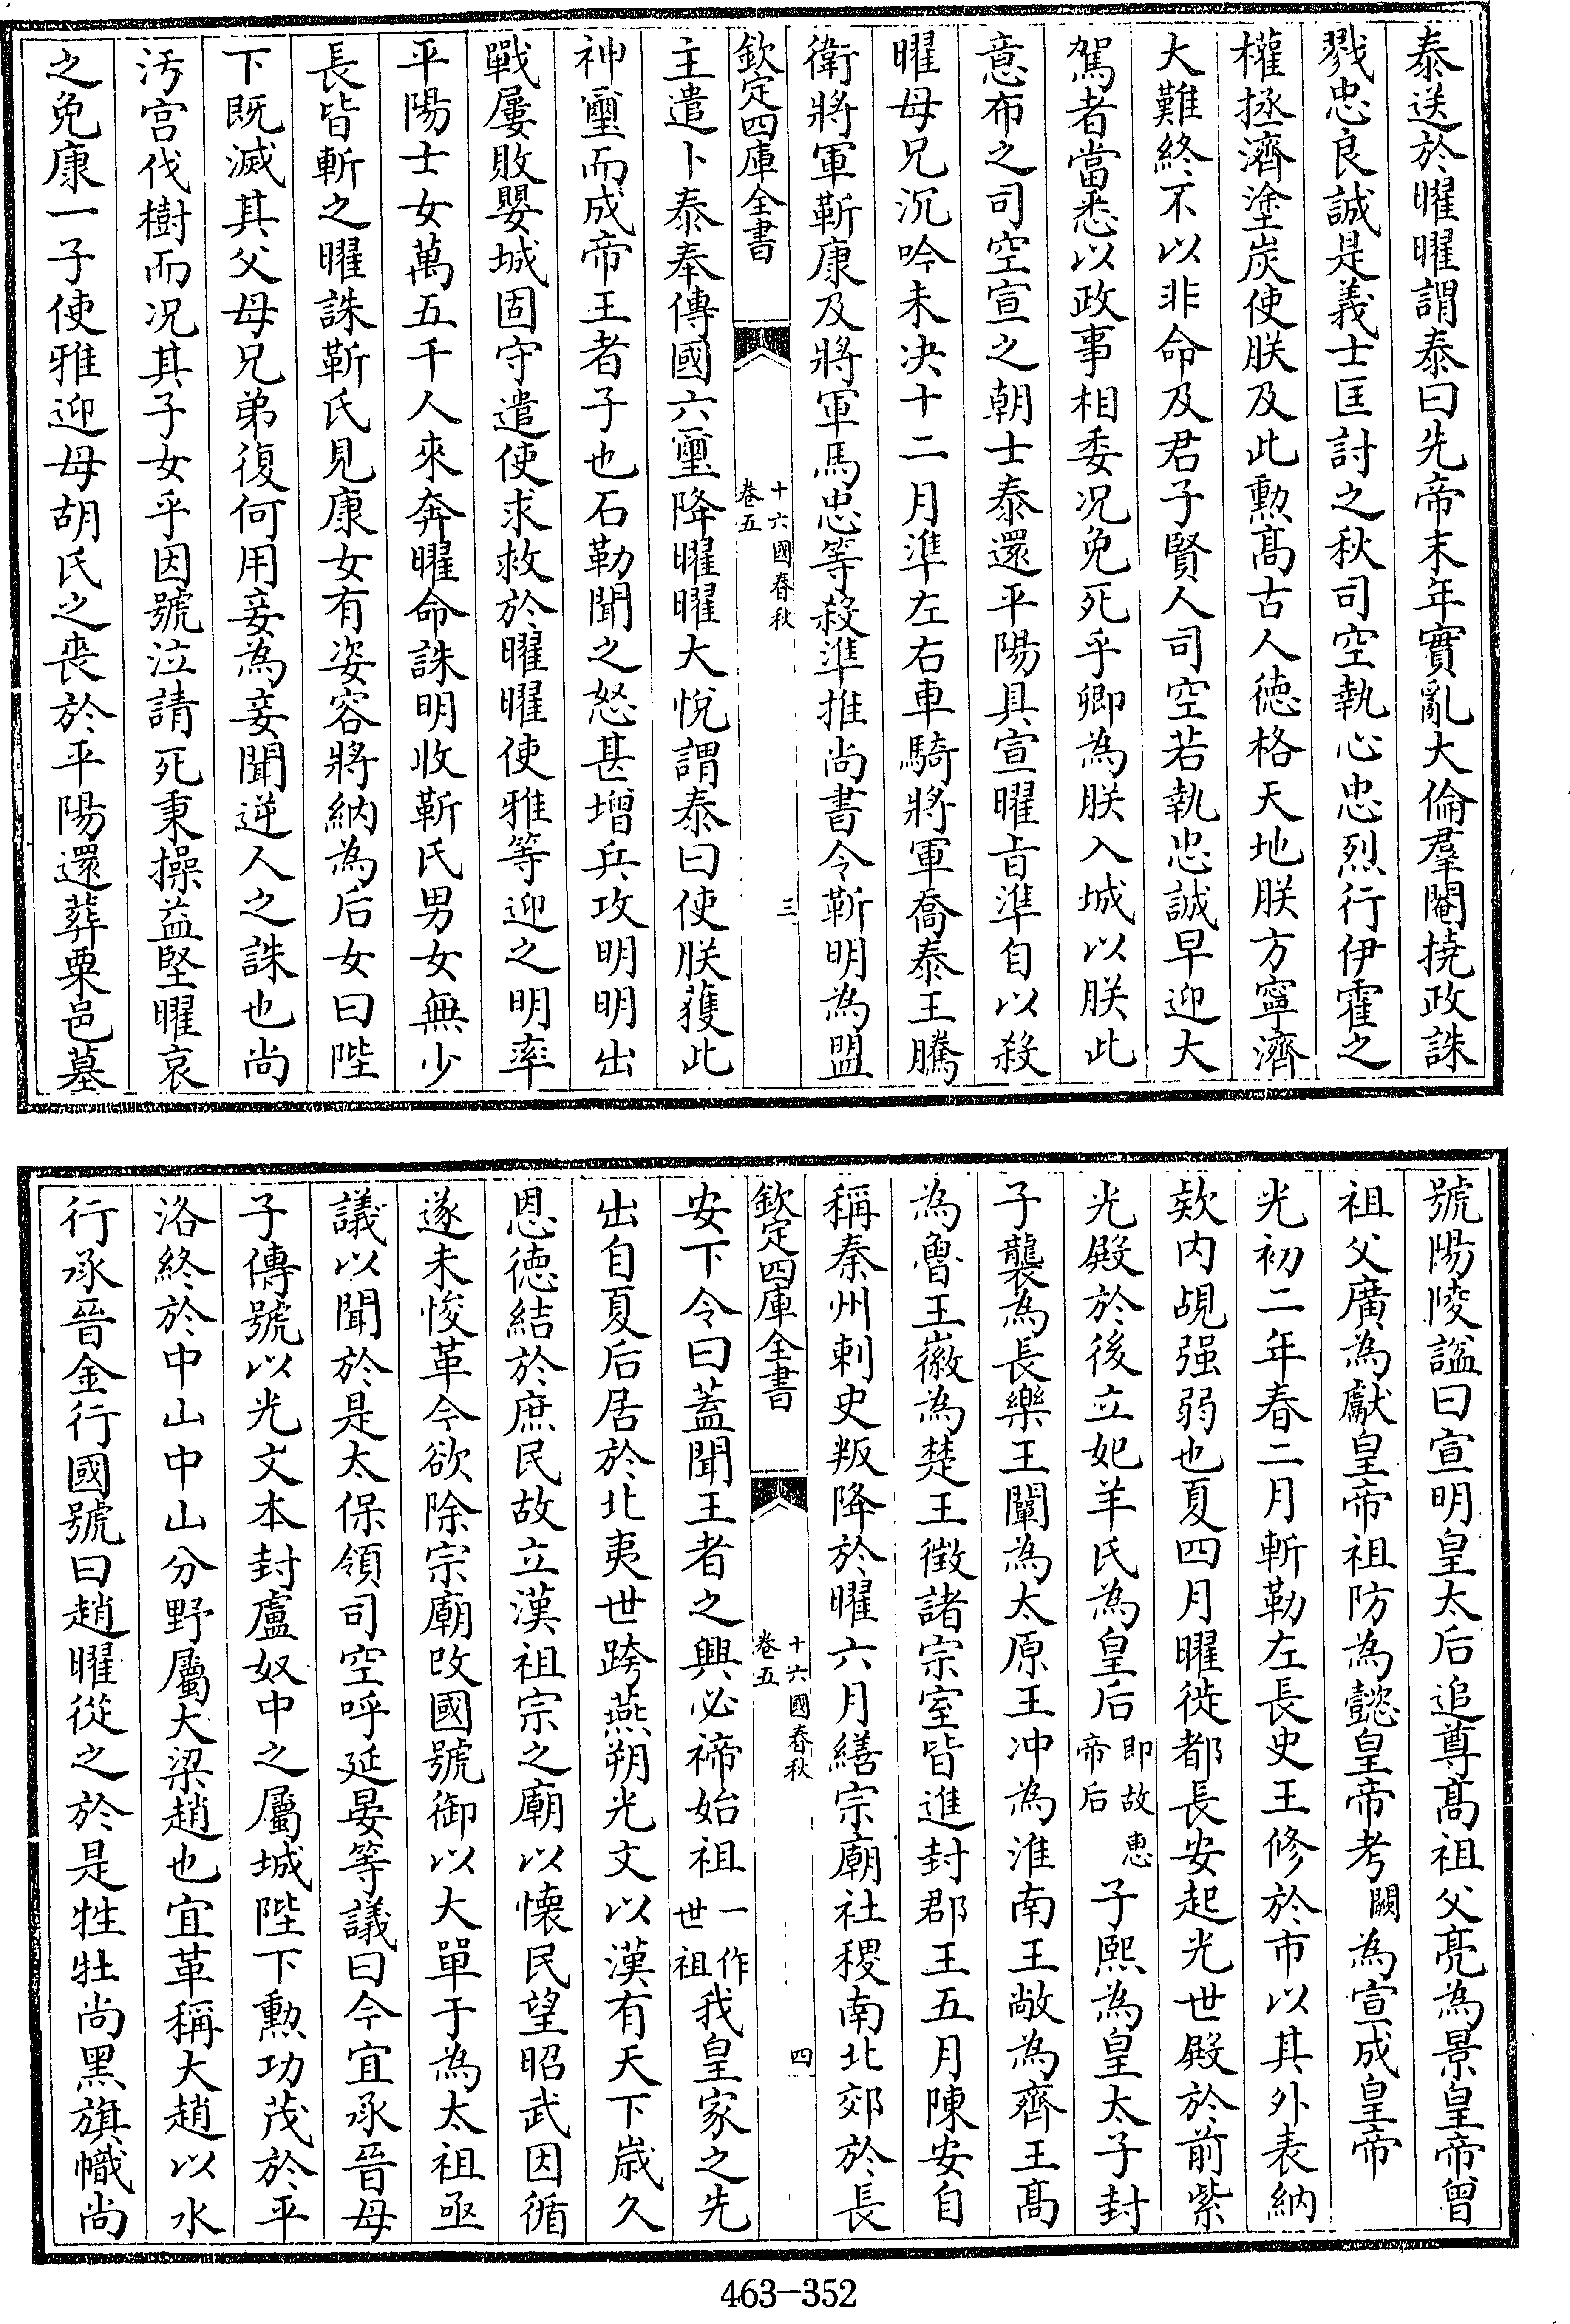 泰送於曜曜謂泰曰先帝末年實亂大倫羣閹撓政誅
戮忠良誠是義士匡討之秋司空執心忠烈行伊霍之
權拯濟塗炭使朕及此勲髙古人徳格天地朕方寧濟
大難終不以非命及君子賢人司空若執忠誠早迎大
駕者當悉以政事相委况免死乎卿為朕入城以朕此
意布之司空宣之朝士泰還平陽具宣曜旨準自以殺
曜母兄沉吟未决十二月準左右車騎將軍喬泰王騰
衛將軍靳康及將軍馬忠等殺準推尚書令靳明為盟
欽定四庫全書
十六國春秋
卷五
三
主遣卜泰奉傳國六璽降曜曜大悅謂泰曰使朕獲此
神璽而成帝王者子也石勒聞之怒甚增兵攻明明出
戰屢敗嬰城固守遣使求救於曜曜使雅等迎之明率
平陽士女萬五千人來奔曜命誅明收靳氏男女無少
長皆斬之曜誅靳氏見康女有姿容將納為后女曰陛
下既滅其父母兄弟復何用妾為妾聞逆人之誅也尚
汚宫伐樹而况其子女乎因號泣請死秉操益堅曜哀
之免康一子使雅迎母胡氏之喪於平陽還葬粟邑墓
號陽陵謚曰宣明皇太后追尊髙祖父亮為景皇帝曾
祖父廣為獻皇帝祖防為懿皇帝考闕為宣成皇帝
光初二年春二月斬勒左長史王修於市以其外表納
欵内覘强弱也夏四月曜徙都長安起光世殿於前紫
光殿於後立妃羊氏為皇后即故惠帝后子熙為皇太子封
子襲為長樂王闡為太原王冲為淮南王敞為齊王髙
為魯王徽為楚王徴諸宗室皆進封郡王五月陳安自
稱秦州剌史叛降於曜六月繕宗廟社稷南北郊於長
欽定四庫全書
十六國春秋
卷五
四
安下令曰蓋聞王者之興必禘始祖一作世祖我皇家之先
出自夏后居於北夷世跨燕朔光文以漢有天下歲久
恩徳結於庶民故立漢祖宗之廟以懐民望昭武因循
遂未悛革今欲除宗廟改國號御以大單于為太祖亟
議以聞於是太保領司空呼延晏等議曰今宜承晉母
子傳號以光文本封盧奴中之屬城陛下勲功茂於平
洛終於中山中山分野屬大梁趙也宜革稱大趙以水
行承晉金行國號曰趙曜從之於是牲牡尚黑旗幟尚
463-352